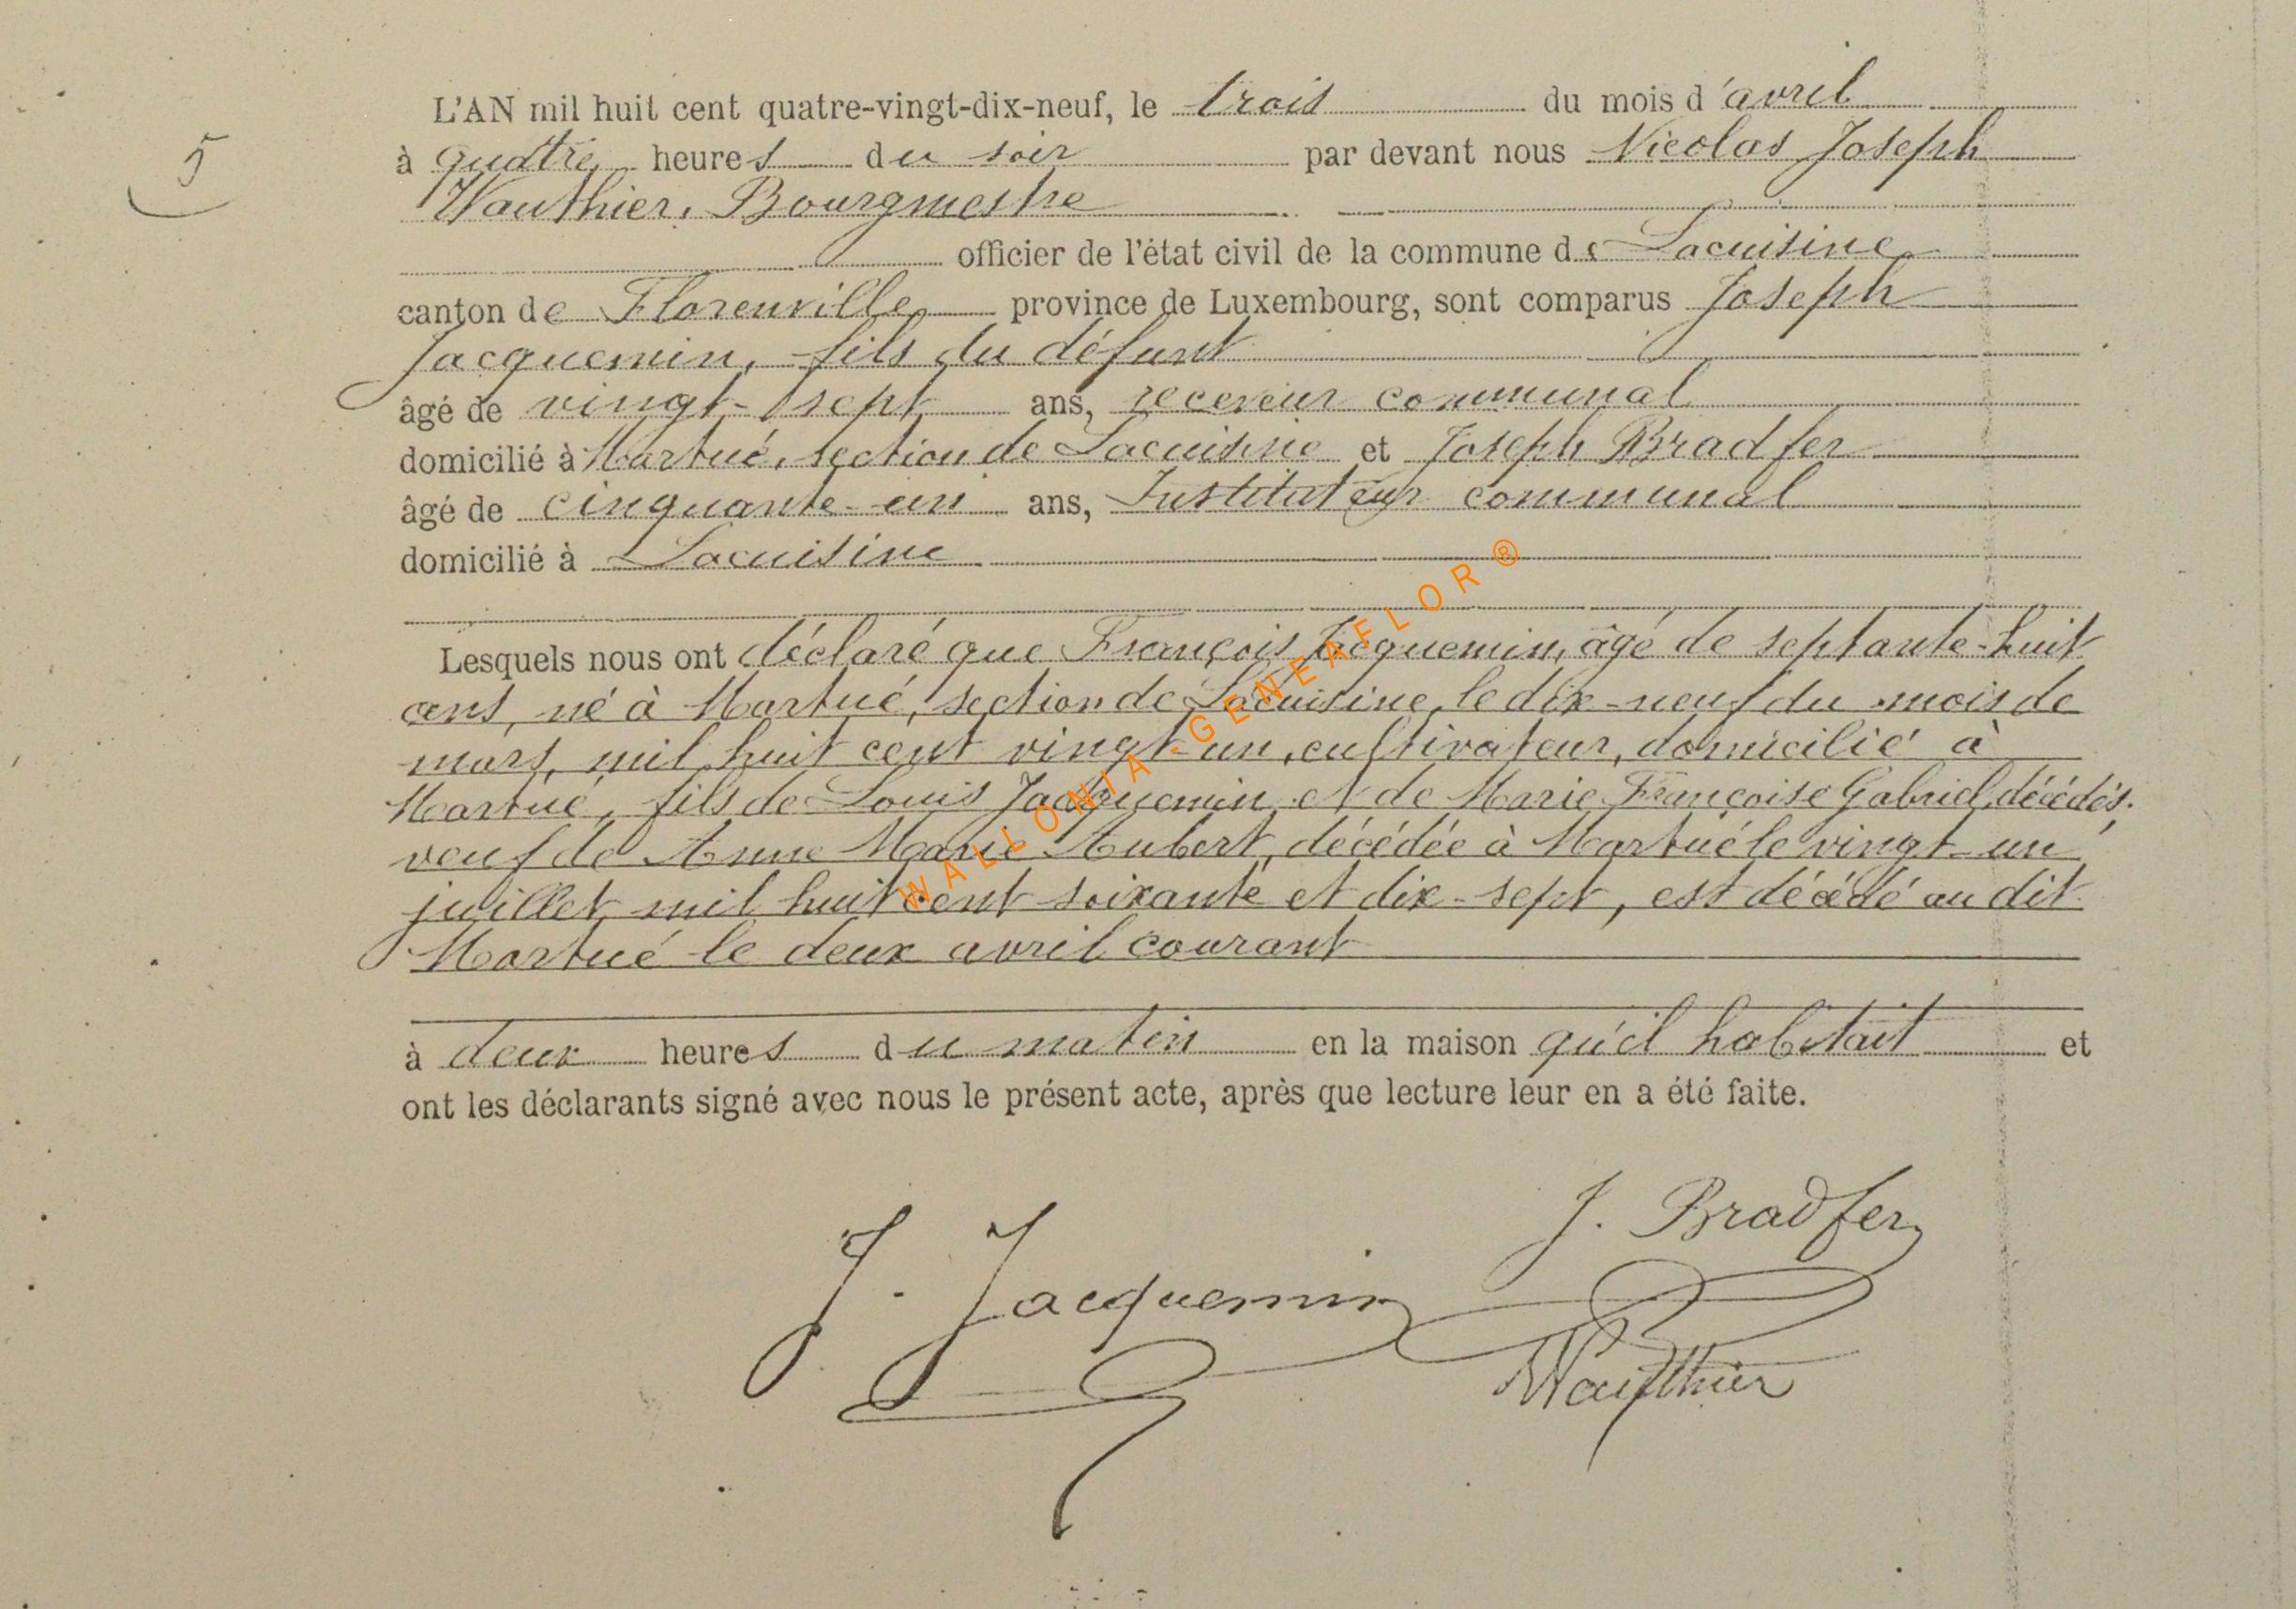 5
L'AN mil huit cent quatre-vingt-dix-neuf, le trois du mois d'avril
à quatre heures du soir par devant nous Nicolas Joseph
Wauthier, Bourgmestre
officier de l'état civil de la commune de Lacuisine
canton de Florenville province de Luxembourg, sont comparus Joseph
Jacquemin, fils du défunt
âgé de vingt-sept ans, receveur communal
domicilié à Martué, section de Lacuisine et Joseph Bradfer
âgé de cinquante-un ans, Instituteur communal
domicilié à Lacuisine
Lesquels nous ont déclaré que François Jacquemin, âgé de septante-huit
ans, né à Martué, section de Lacuisine, le dix-neuf du mois de
mars, mil huit cent vingt-un, cultivateur, domicilié à
Martué, fils de Louis Jacquemin et de Marie Françoise Gabriel, décédés,
veuf de Anne Marie Aubert, décédée à Martué le vingt-un
juillet mil huit cent soixante et dix-sept, est décédé au dit
Martué le deux avril courant
à deux heures du matin en la maison qu'il habitait et
ont les déclarants signé avec nous le présent acte, après que lecture leur en a été faite.
J. Bradfer
J. Jacquemin
Wauthier
WALLONIA-GENEAFLOR®